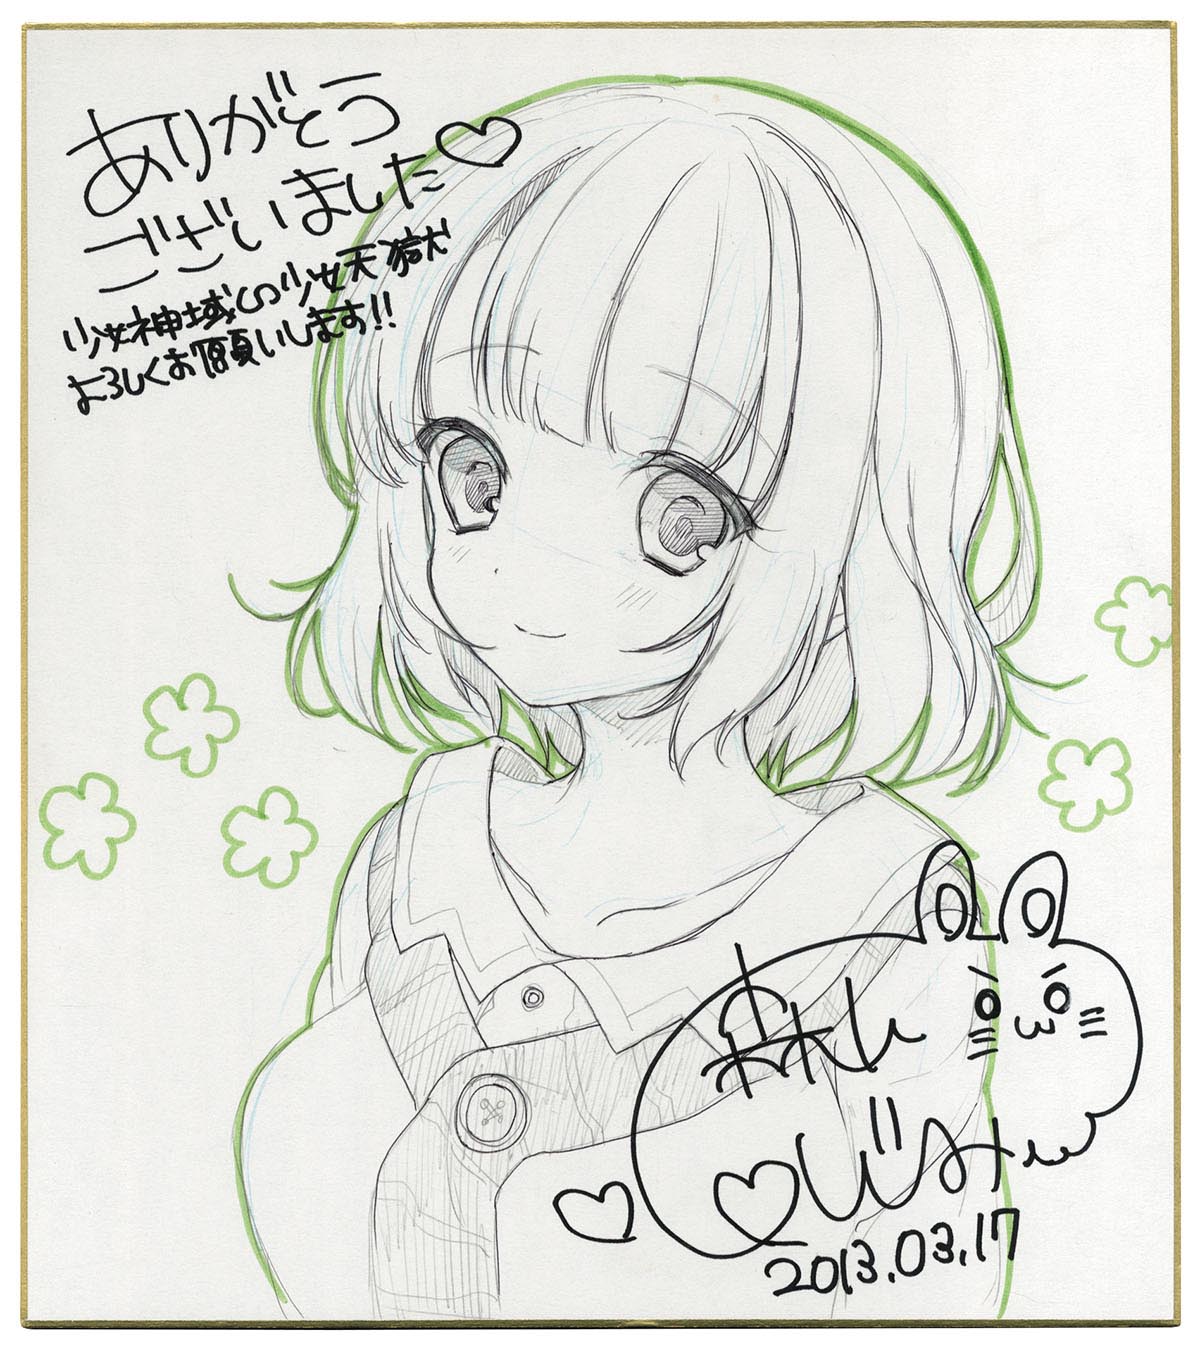 ありがとう
ございました♡
少女神域∽少女天獄
よろしくお願いします!!
2013.03.17